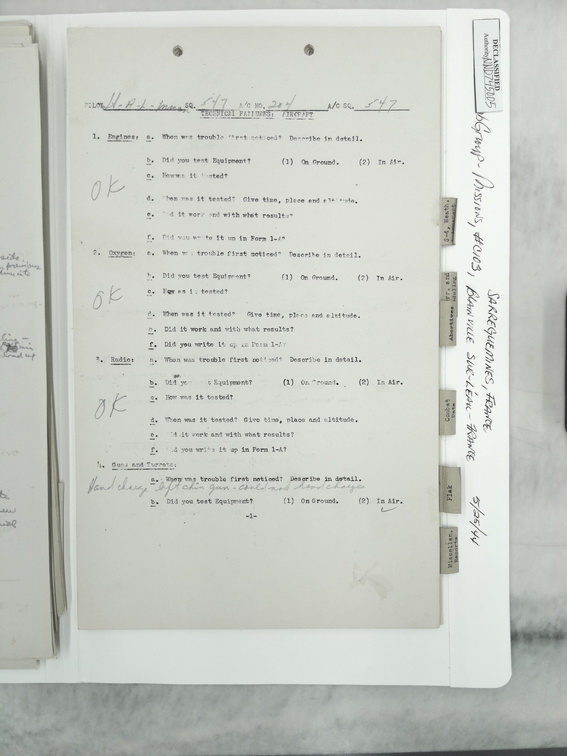 PILOT SQ. 547 A/C NO. 204 A/C SQ. 547
TECHNICAL FAILURES: AIRCRAFT
1. Engines: a. When was trouble first noticed? Describe in detail.
b. Did you test Equipment? (1) On Ground. (2) In Air.
c. How was it tested?
OK
d. When was it tested? Give time, place and altitude.
e. Did it work and with what results?
f. Did you write it up in Form 1-A?
2. Oxygen: a. When was trouble first noticed? Describe in detail.
b. Did you test Equipment? (1) On Ground. (2) In Air.
c. How was it tested?
OK
d. When was it tested? Give time, place and altitude.
e. Did it work and with what results?
f. Did you write it up in Form 1-A?
3. Radio: a. When was trouble first noticed? Describe in detail.
b. Did you Equipment? (1) On Ground. (2) In Air.
c. How was it tested?
OK
d. When was it tested? Give time, place and altitude.
e. Did it work and with what results?
f. Did you write it up in Form 1-A?
4. Guns and Turrets:
a. When was trouble first noticed? Describe in detail.
Hand left chin gun - could not hand charge
b. Did you test Equipment? (1) On Ground. (2) In Air.
-1-
DECLASSIFIED
Authority NND745005
Group - Missions, # CW03, BLAINVILLE SUR-LEAU - FRANCE
SARREGUEMINES, FRANCE
5/25/44
Abortives
Combat
Flak